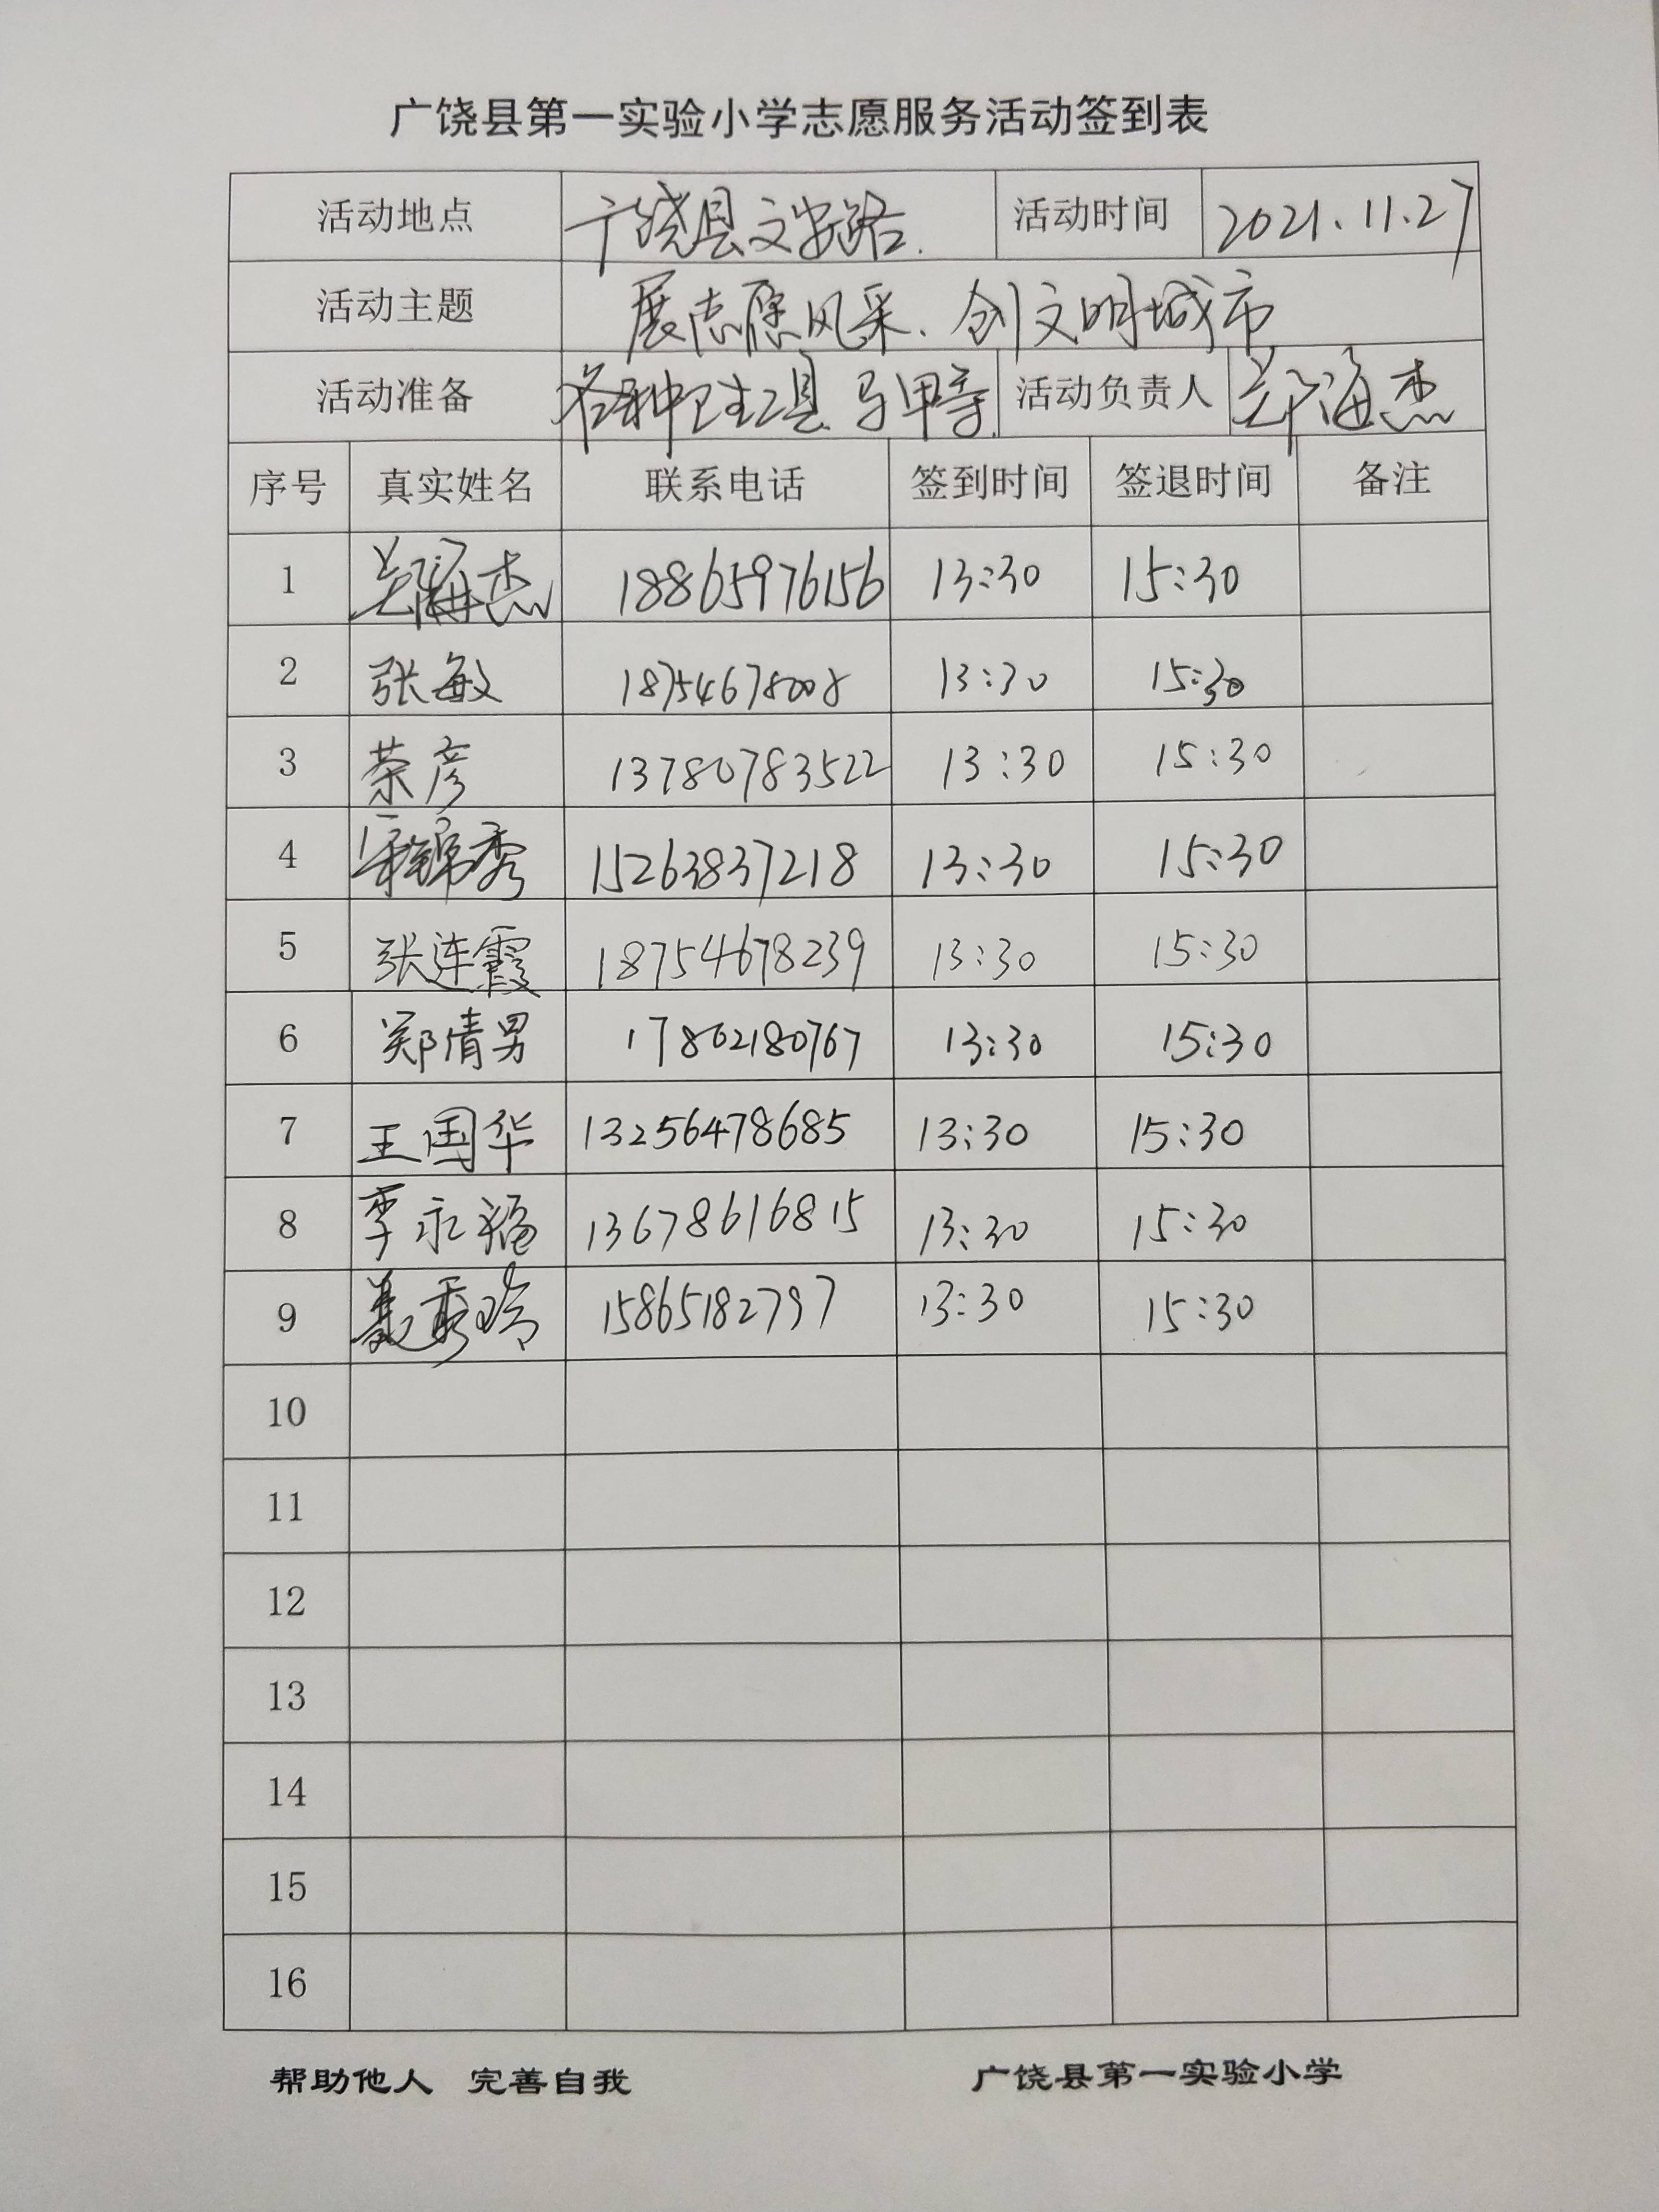 广饶县第一实验小学志愿服务活动签到表
活动地点 广饶县文安路. 活动时间 2021.11.27
活动主题 展志愿风采、创文明城市
活动准备 各种卫生工具 马甲等. 活动负责人 郑海杰
序号 真实姓名 联系电话 签到时间 签退时间 备注
1 郑海杰 18865976156 13:30 15:30
2 张敏 18754678008 13:30 15:30
3 荣彦 13780783522 13:30 15:30
4 锦秀 15263837218 13:30 15:30
5 张连霞 18754678239 13:30 15:30
6 郑倩男 17862180767 13:30 15:30
7 王国华 13256478685 13:30 15:30
8 李永福 13678616815 13:30 15:30
9 秀玲 15865182797 13:30 15:30
10
11
12
13
14
15
16
帮助他人 完善自我 广饶县第一实验小学